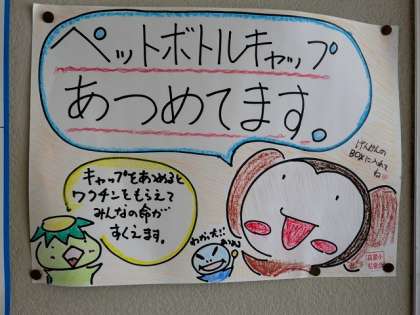 ペットボトルキャップ
あつめてます。
げんかんの
BOXに入れて
ね
キャップをあつめると
ワクチンをもらえて
みんなの命が
すくえます。
わかった!!